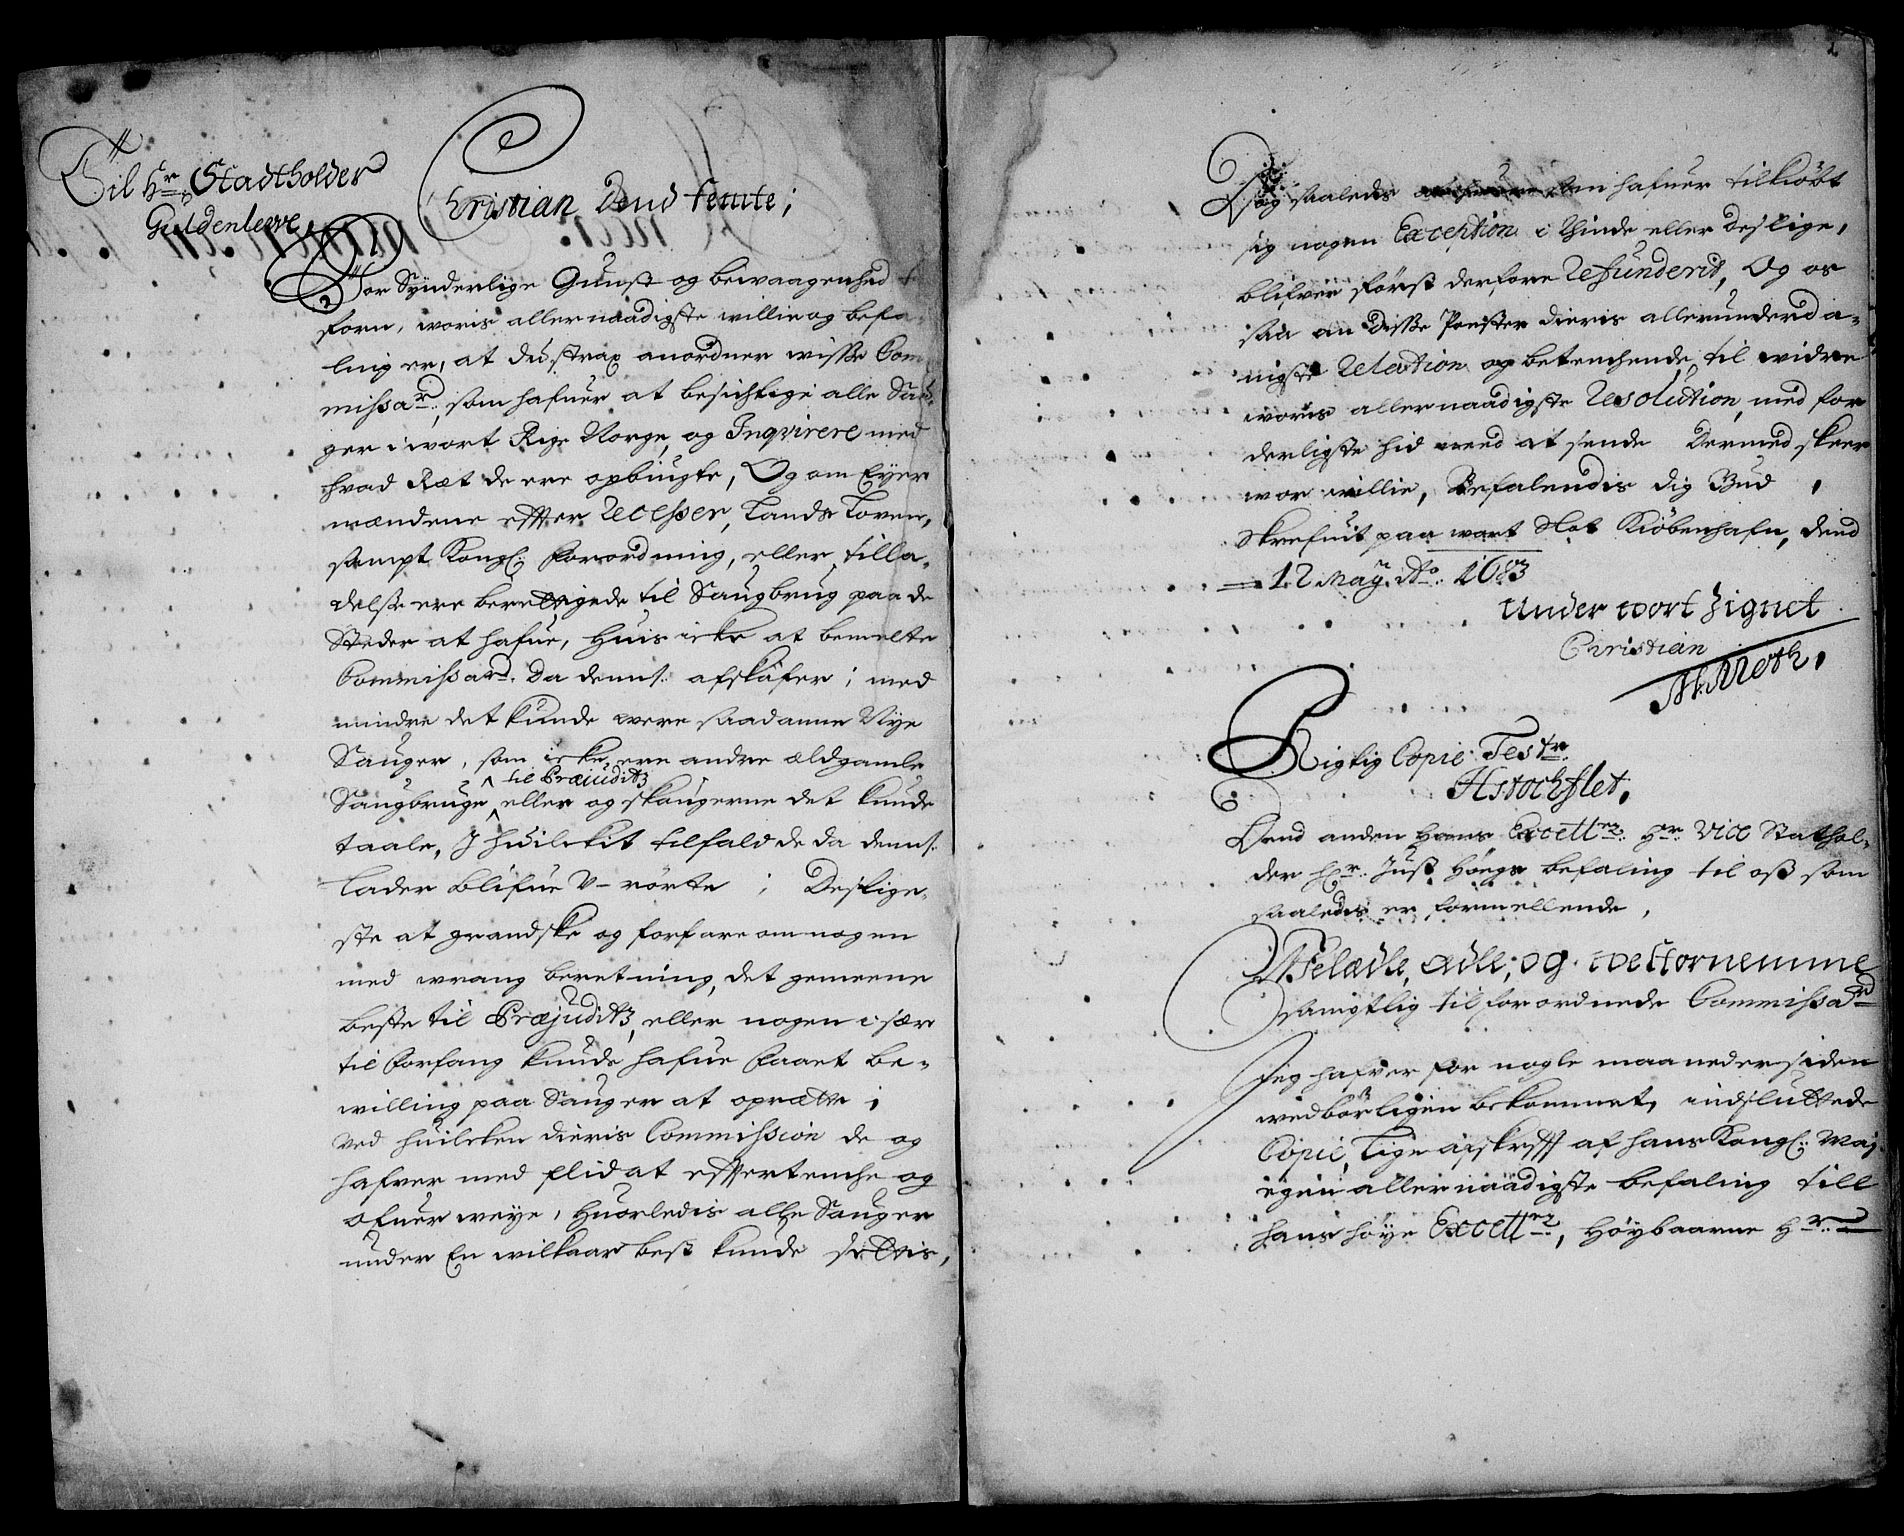 Til Hr. Stadtholder
Guldenlewe,
Christian Dend femte;
Wor Synderlige Gunst og bewaagenhed
forn, woris aller naadigste willie og befa-
ling er, at du strax anordner wisse Com
missar: som hafuer at besichtige alle Sau-
ger i wort Rige Norge, og Inqvirere med
hvad Ræt de ere opbiugte, Og om Eyer
mændene effter Recesser, Lands Loven,
sampt Kongl: forordning, eller tilla-
delse ere berettigede til Saugbrug paa de
Steder at hafue, Huis icke at bemelte
Commissard. da dennS: afskafer; med
mindre det kunde were saadanne Nye
Sauger, som icke ere andre ældgamle
til Præjuditz
Saugbruge eller og skaugerne det kunde
taale, J huilckit tilfald de da dennS:
lader blifue U-rörte; Deslige-
ste at grandske og forfare om nogen
med wrang beretning, det gemeene
beste til Præjuditz, eller nogen i sær
til forfang kunde hafue faaet be-
willing paa Sauger at oprætte;
ved huilcken dieris Commission de og
hafver med flid at effertenche og
ofuer weye, Huorledis alle Sauger
under En wilkaar best kunde settis,
2
Dog saaledis at hafuer tilkiöbt
sig nogen Exception i Thinde eller deslige,
blifver först derfore Refunderit, Og os
saa an disse Poster dieris allerunderda-
nigste Relation og betenchende til widre
woris allernaadigste Resolution, med for
derligste hid need at sende Dermed skeer
wor willie, Befalendis dig Gud,
Skrefuit paa wort Slot Kiöbenhafn, dend
12 Maÿ Ao: 1683
Under wort Zignet
Christian
M: Moth,
Rigtig Copie Testr.
H Stochflet,
Dend anden Hans Excellr. Hr: Vice Stathol-
der Hr: Just Höegs befaling til oss som
saaledis er formellende,
Welædle, ædle, og welfornemme
samptlig til forordnede Commissard
Jeg hafver for nogle maaneder siden
wedbörligen bekommet, indsluttede
Copie, Lige afskrfft af hans Kongl: Maj
egen allernaadigste befaling till
hans höye Excellr., Höybaarne Hr: